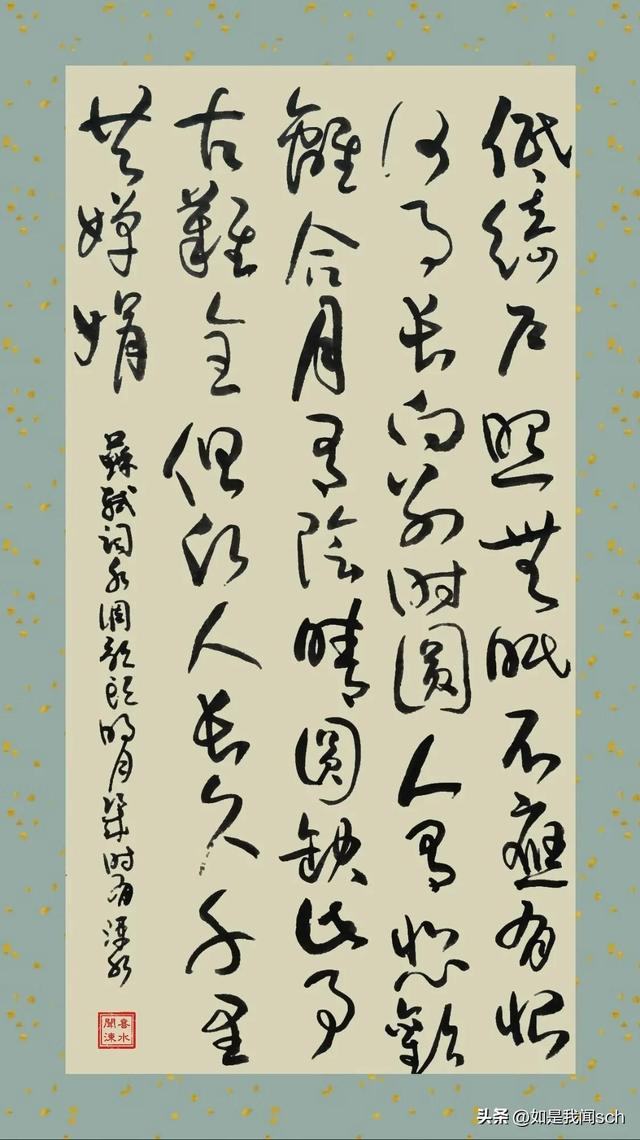 低綺户照無眠不應有恨
何事長向别時圓人有悲歡
離合月有陰晴圓缺此事
古難全但願人長久千里
共嬋娟
蘇軾詞水調歌頭明月幾時有
头条 @如是我闻sch